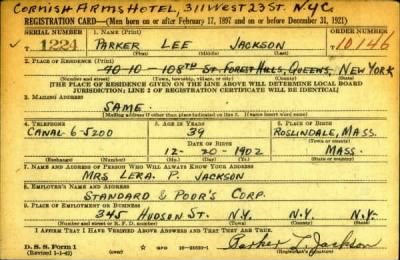 CORNISH ARMS HOTEL, 311 WEST 23 ST. N.Y.C.
REGISTRATION CARD—(Men born on or after February 17, 1897 and on or before December 31, 1921)
SERIAL NUMBER 1. NAME (Print) ORDER NUMBER
T 1224 PARKER LEE JACKSON T10,146
(First) (Middle) (Last)
2. PLACE OF RESIDENCE (Print)
70-10 - 108TH ST. FOREST HILLS, QUEENS, NEW YORK
(Number and street) (Town, township, village, or city) (County) (State)
[THE PLACE OF RESIDENCE GIVEN ON THE LINE ABOVE WILL DETERMINE LOCAL BOARD
JURISDICTION; LINE 2 OF REGISTRATION CERTIFICATE WILL BE IDENTICAL]
3. MAILING ADDRESS
SAME.
[Mailing address if other than place indicated on line 2. If same insert word same]
4. TELEPHONE 5. AGE IN YEARS 6. PLACE OF BIRTH
CANAL-6-5200 39 ROSLINDALE, MASS.
DATE OF BIRTH (Town or county)
12-20-1902 MASS.
(Exchange) (Number) (Mo.) (Day) (Yr.) (State or country)
7. NAME AND ADDRESS OF PERSON WHO WILL ALWAYS KNOW YOUR ADDRESS
MRS LERA. P. JACKSON
8. EMPLOYER'S NAME AND ADDRESS
STANDARD & POOR'S CORP.
9. PLACE OF EMPLOYMENT OR BUSINESS
345 HUDSON ST. N.Y. N.Y. N.Y.
(Number and street or R. F. D. number) (Town) (County) (State)
I AFFIRM THAT I HAVE VERIFIED ABOVE ANSWERS AND THAT THEY ARE TRUE.
D. S. S. Form 1
(Revised 1-1-42) (over) Parker L. Jackson
(Registrant's signature)